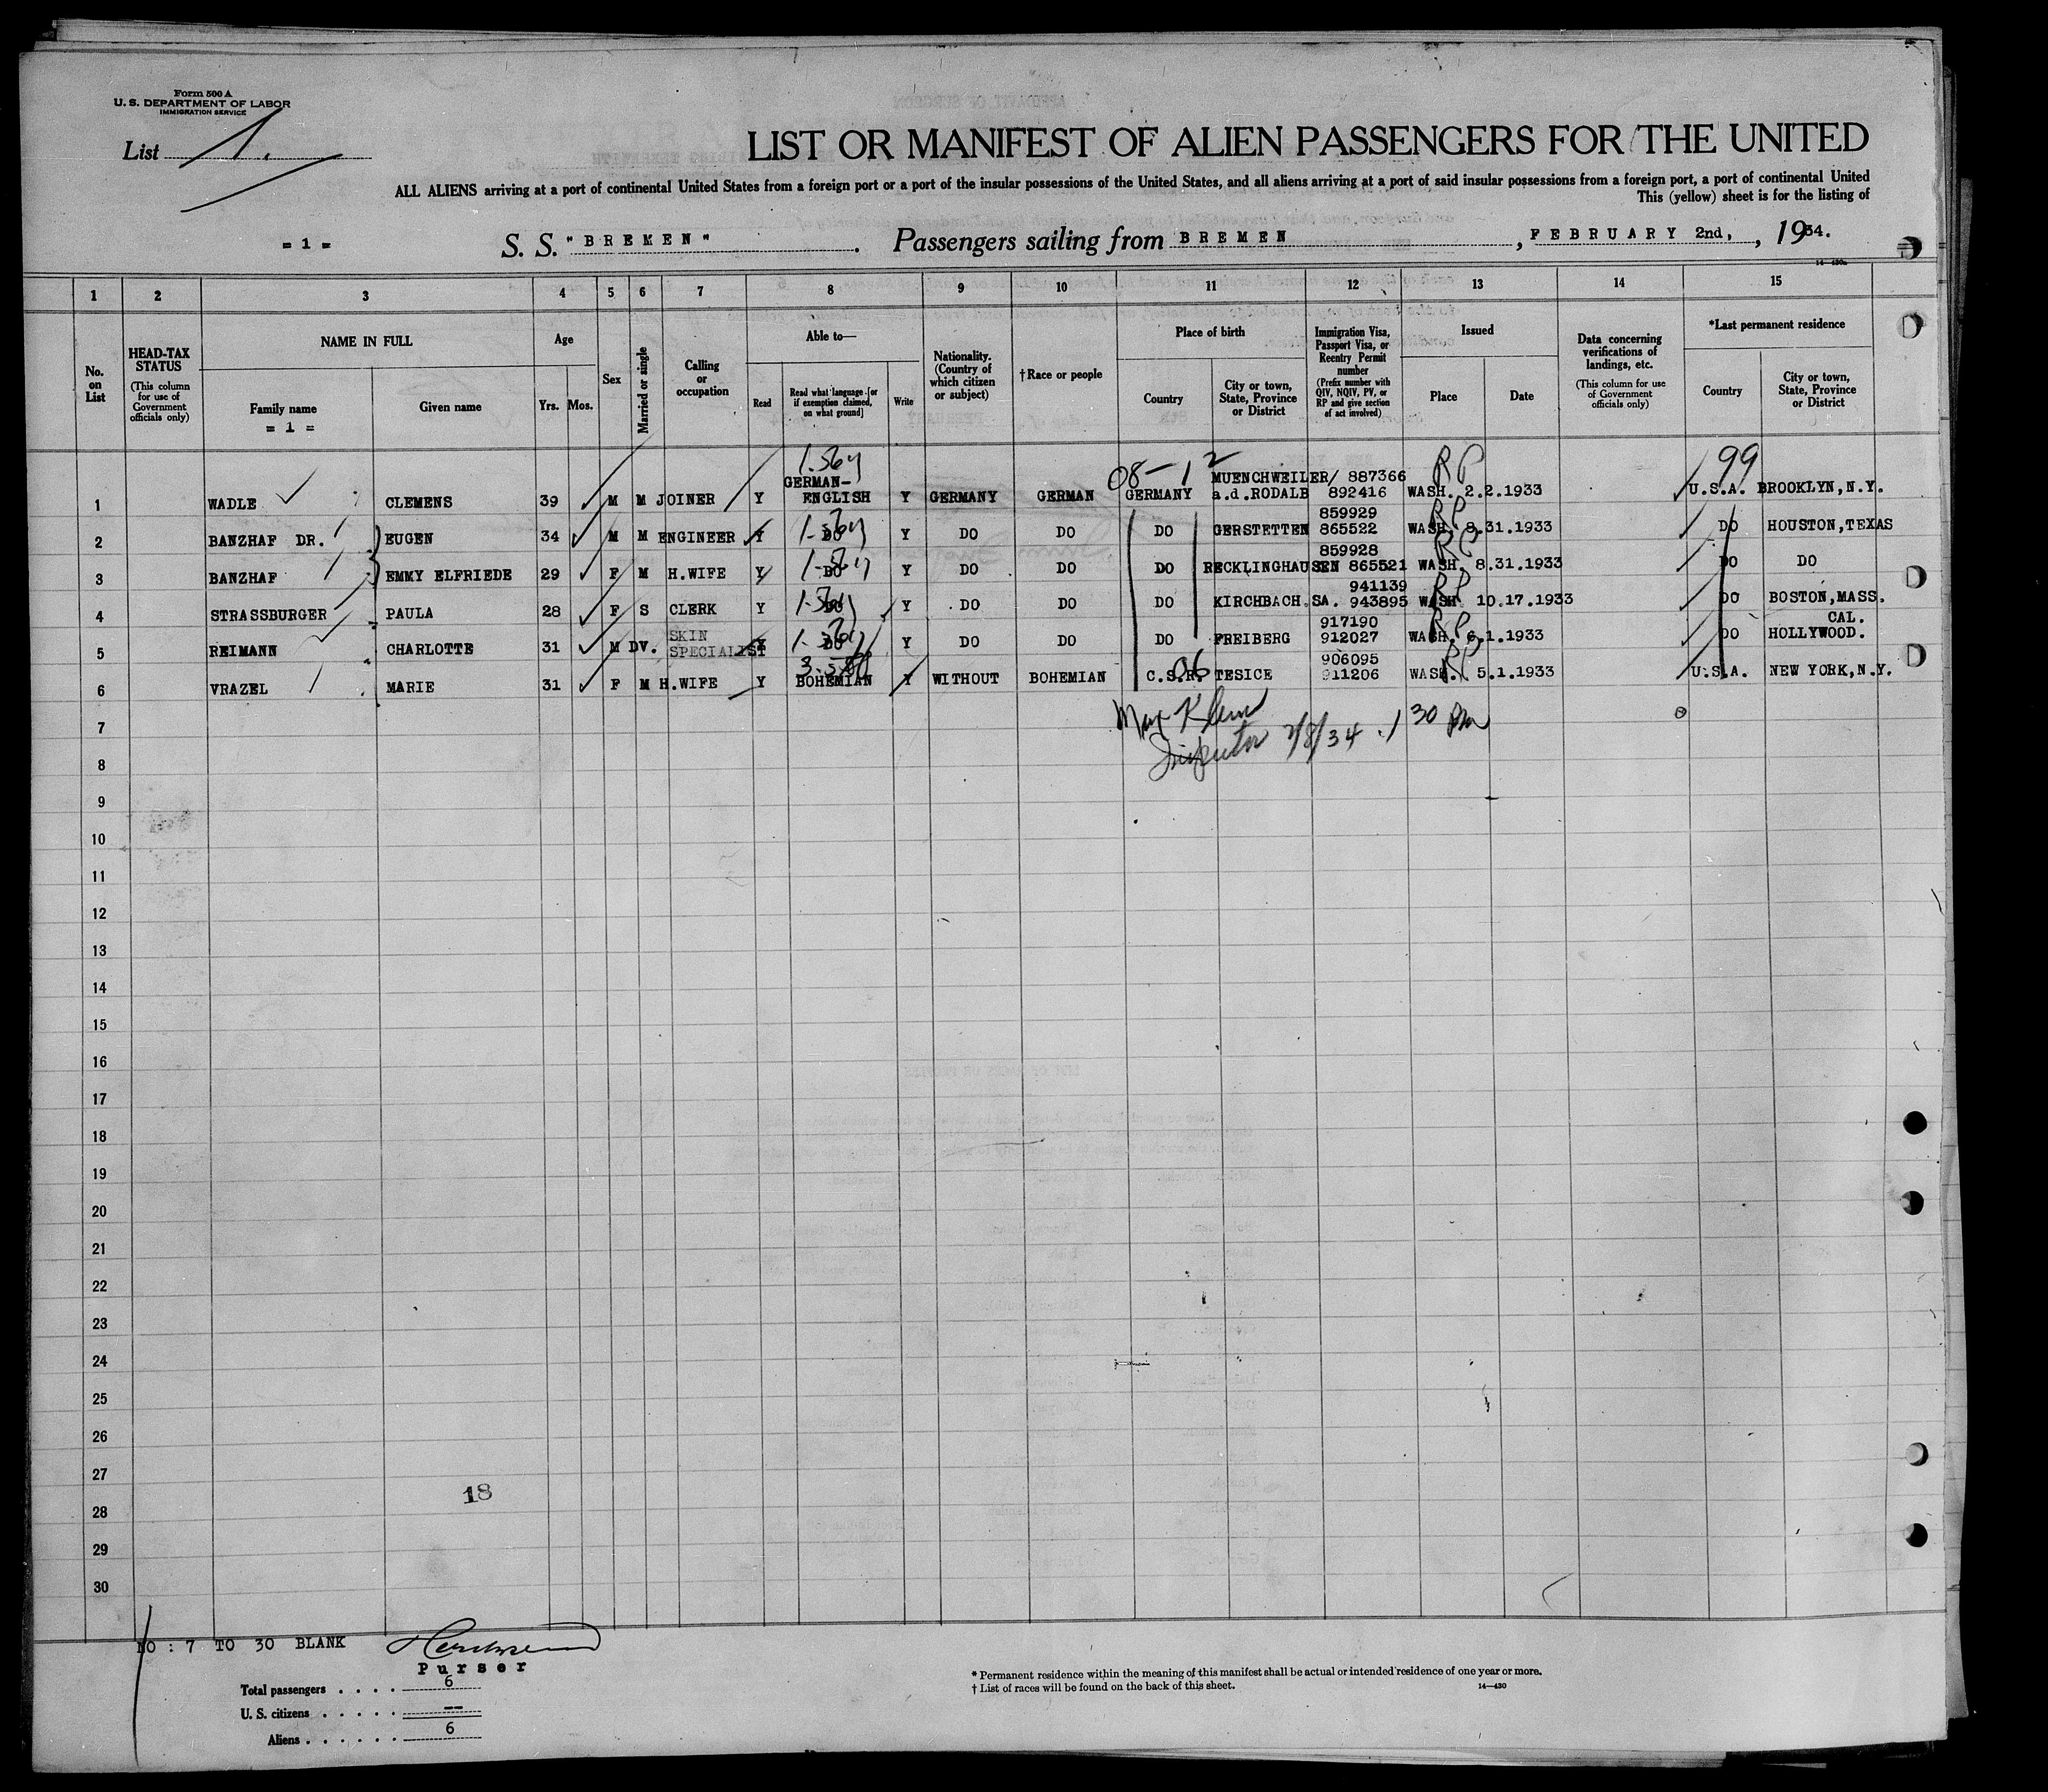 Form 500 A
U. S. DEPARTMENT OF LABOR
IMMIGRATION SERVICE
List 1.
LIST OR MANIFEST OF ALIEN PASSENGERS FOR THE UNITED
ALL ALIENS arriving at a port of continental United States from a foreign port or a port of the insular possessions of the United States, and all aliens arriving at a port of said insular possessions from a foreign port, a port of continental United
This (yellow) sheet is for the listing of
= 1 = S. S. "BREMEN" . Passengers sailing from BREMEN , FEBRUARY 2nd, , 1934.
14—430a
1 2 3 4 5 6 7 8 9 10 11 12 13 14 15
No. on List
HEAD-TAX STATUS
(This column for use of Government officials only)
NAME IN FULL
Family name
= 1 =
Given name
Age
Yrs. Mos.
Sex
Married or single
Calling or occupation
Able to—
Read
Read what language [or if exemption claimed, on what ground]
Write
Nationality. (Country of which citizen or subject)
† Race or people
Place of birth
Country
City or town, State, Province or District
Immigration Visa, Passport Visa, or Reentry Permit number
(Prefix number with QIV, NQIV, PV, or RP and give section of act involved)
Issued
Place
Date
Data concerning verifications of landings, etc.
(This column for use of Government officials only)
*Last permanent residence
Country
City or town, State, Province or District
08-12 RP 99
GERMAN- MUENCHWEILER/ 887366
1 WADLE CLEMENS 39 M M JOINER Y ENGLISH Y GERMANY GERMAN GERMANY a.d.RODALB 892416 WASH. 2.2.1933 U.S.A. BROOKLYN,N.Y.
859929 RP
2 BANZHAF DR. EUGEN 34 M M ENGINEER Y DO Y DO DO DO GERSTETTEN 865522 WASH. 8.31.1933 DO HOUSTON,TEXAS
859928 RP
3 BANZHAF EMMY ELFRIEDE 29 F M H.WIFE Y DO Y DO DO DO RECKLINGHAUSEN 865521 WASH. 8.31.1933 DO DO
941139 RP
4 STRASSBURGER PAULA 28 F S CLERK Y DO Y DO DO DO KIRCHBACH.SA. 943895 WASH. 10.17.1933 DO BOSTON,MASS.
SKIN 917190 RP CAL.
5 REIMANN CHARLOTTE 31 M DV. SPECIALIST Y DO Y DO DO DO FREIBERG 912027 WASH. 6.1.1933 DO HOLLYWOOD.
06 906095 RP
6 VRAZEL MARIE 31 F M H.WIFE Y BOHEMIAN Y WITHOUT BOHEMIAN C.S.R. TESICE 911206 WASH. 5.1.1933 U.S.A. NEW YORK,N.Y.
7 Max Klein
Inspector 2/8/34 . 1 30 Pm
8
9
10
11
12
13
14
15
16
17
18
19
20
21
22
23
24
25
26
27
18
28
29
30
NO : 7 TO 30 BLANK
Purser
Total passengers . . . . 6
U. S. citizens . . . . . --
Aliens . . . . . . 6
* Permanent residence within the meaning of this manifest shall be actual or intended residence of one year or more.
† List of races will be found on the back of this sheet.
14—430